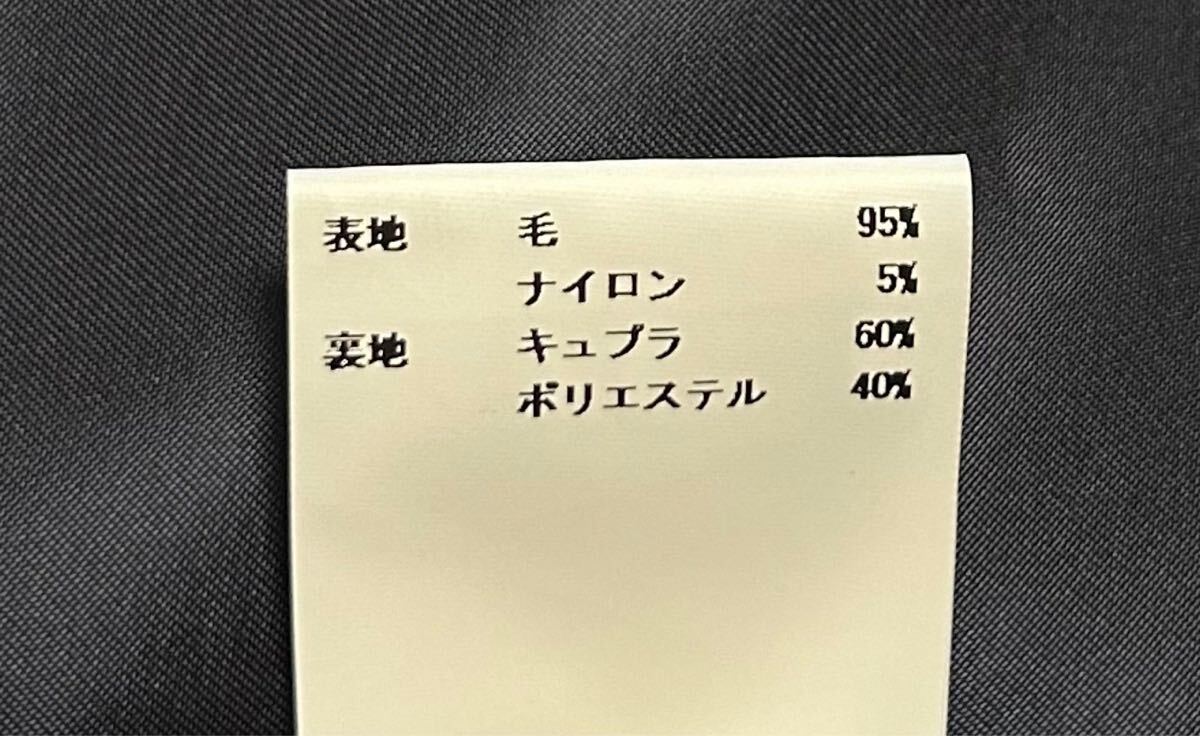 表地 毛 95%
ナイロン 5%
裏地 キュプラ 60%
ポリエステル 40%